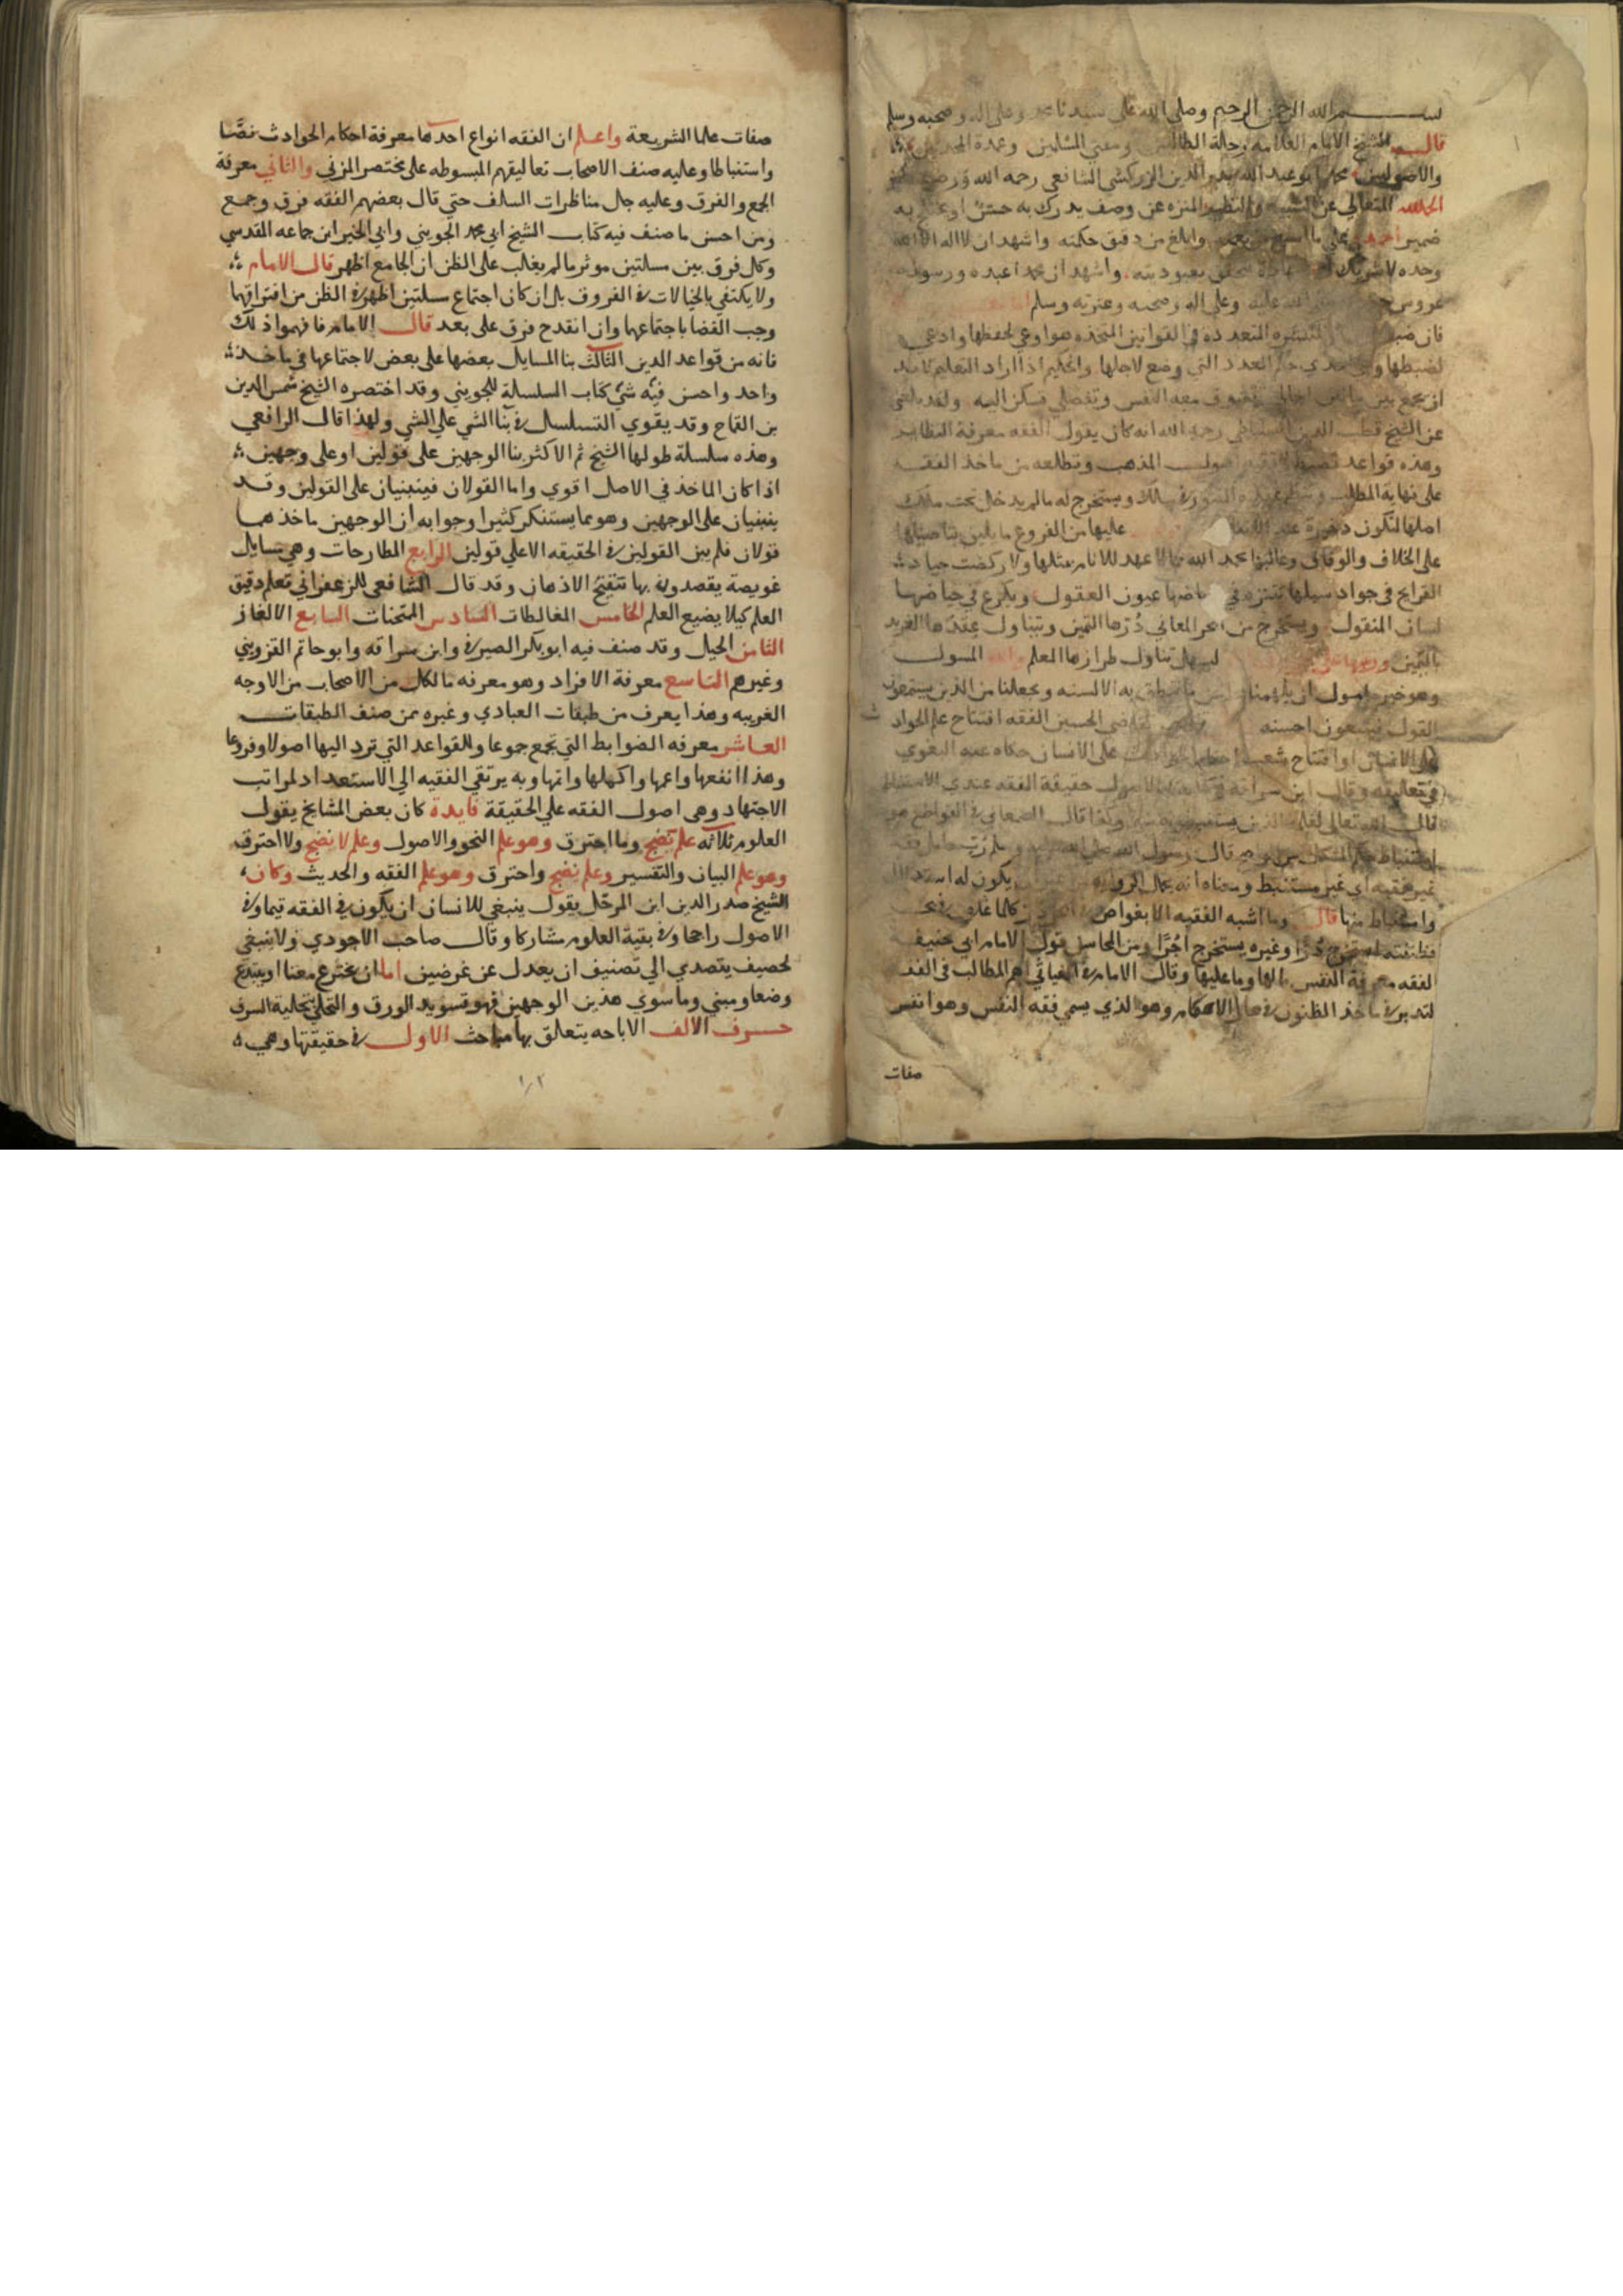 بسم الله الرحمن الرحيم وصلى الله على سيدنا محمد وعلى اله وصحبه وسلم
قال الشيخ الامام العلامه رحلة الطالبين ومفتي المسلمين وعمدة
والاصوليين محمد ابو عبد الله بدر الدين الزركشي الشافعي رحمه الله ورضي عنه
الحمد لله المتعالي عن الشبيه والنظير المنزه عن وصف يدركه به
ضمير احمده على ما وابلغ من دقيق حكمته واشهد ان لا اله الا الله
وحده لا شريك له شهادة بعبوديته واشهد ان محمدا عبده ورسوله
صلى الله عليه وعلى اله وصحبه وعترته وسلم
فان ضبط المنتشره المتعدده في القوانين المتحده هو اوعي لحفظها وادعي
لضبطها وهي احدي حكم العدد التي وضع لاجلها والحكيم اذا اراد التعليم لا بد
ان يجمع بين بيانين اجمالي تتشوف معه النفس وتفصيلي تسكن اليه ولقد بلغني
عن الشيخ قطب الدين السنباطي رحمه الله انه كان يقول الفقه معرفة النظاير
وهذه قواعد تضبط اصول المذهب وتطلعه من ماخذ الفقه
على نهاية المطلب وتنظم في سلك ويستخرج له ما لم يدخل تحت ملك
اصلها لتكون ذخيرة عند عليها من الفروع ما يليق بتاصيلها
على الخلاف والوفاق وغالبها بحمد الله مما لا عهد للانام بمثلها ولا ركضت جياد
القرايح في جواد سبلها تتنزه في رياضها عيون العقول ويكرع في حياضها
لسان المنقول ويستخرج من ابحر المعاني دُرّها الثمين وتتناول عِقدها الفريد
باليمين ورتبتها على ليسهل تناول طرازها المعلم والله المسول
وهو خير مامول ان يلهمنا ما تنطق به الالسنه ويجعلنا من الذين يستمعون
القول فيتبعون احسنه القاضي الحسين الفقه افتتاح علم الحوادث
على الانسان او افتتاح شعب احكام الحوادث على الانسان حكاه عنه البغوي
في تعليقه وقال ابن سراقه في كتابه الاصول حقيقة الفقه عندي الاستنباط
قال الله تعالى لعلمه الذين يستنبطونه وكذا قال السمعاني في القواطع هو
استنباط حكم المشكل من الواضح قال رسول الله صلى الله عليه وسلم رُبّ حامل فقه
غير فقيه اي غير مستنبط ومعناه انه يحمل الروايه من غير ان يكون له استدلال
واستنباط منها قال وما اشبه الفقيه الا بغواص في بحر كلما غاص في بحر
فطنته استخرج دُرّا وغيره يستخرج اجُرّا ومن المحاسن قول الامام ابي حنيفة
الفقه معرفة النفس ما لها وما عليها وقال الامام في الغياثي اهم المطالب في الفقه
التدرب في ماخذ الظنون في مجال الاحكام وهو الذي يسمي فقه النفس وهو انفس
صفات
صفات علما الشريعة واعلم ان الفقه انواع احدها معرفة احكام الحوادث نصًّا
واستنباطا وعليه صنف الاصحاب تعاليقهم المبسوطه على مختصر المزني والثاني معرفة
الجمع والفرق وعليه جل مناظرات السلف حتي قال بعضهم الفقه فرق وجمع
ومن احسن ما صنف فيه كتاب الشيخ ابي محمد الجويني وابي الخير ابن جماعه المقدسي
وكل فرق بين مسلتين موثر ما لم يغلب على الظن ان الجامع اظهر قال الامام
ولا يكتفي بالخيالات في الفروق بل ان كان اجتماع مسلتين اظهر في الظن من افتراقهما
وجب القضا باجتماعهما وان انقدح فرق على بعد قال الامام فافهموا ذلك
فانه من قواعد الدين الثالث بنا المسايل بعضها على بعض لاجتماعها في ماخذ
واحد واحسن فيه شئ كتاب السلسلة للجويني وقد اختصره الشيخ شمس الدين
بن القماح وقد يقوي التسلسل في بنا الشي علي الشي ولهذا قال الرافعي
وهذه سلسلة طولها الشيخ ثم الاكثر بنا الوجهين على قولين او على وجهين
اذا كان الماخذ في الاصل اقوي واما القولان فينبنيان على القولين وقد
ينبنيان على الوجهين وهو مما يستنكر كثيرا وجوابه ان الوجهين ماخذهما
قولان فلم يبن القولين في الحقيقه الا علي قولين الرابع المطارحات وهي مسايل
عويصة يقصدون بها تنقيح الاذهان وقد قال الشافعي للزعفراني تعلم دقيق
العلم كيلا يضيع العلم الخامس المغالطات السادس الممتحنات السابع الالغاز
الثامن الحيل وقد صنف فيه ابو بكر الصيرفي وابن سراقه وابو حاتم القزويني
وغيرهم التاسع معرفة الافراد وهو معرفه ما لكل من الاصحاب من الاوجه
الغريبه وهذا يعرف من طبقات العبادي وغيره ممن صنف الطبقات
العاشر معرفه الضوابط التي تجمع جموعا والقواعد التي ترد اليها اصولا وفروعا
وهذا انفعها واعمها واكملها واتمها وبه يرتقي الفقيه الي الاستعداد لمراتب
الاجتهاد وهي اصول الفقه علي الحقيقة فايدة كان بعض المشايخ يقول
العلوم ثلاثه علم نضج وما احترق وهو علم النحو والاصول وعلم لا نضج ولا احترق
وهو علم البيان والتفسير وعلم نضج واحترق وهو علم الفقه والحديث وكان
الشيخ صدر الدين ابن المرحّل يقول ينبغي للانسان ان يكون في الفقه قيما وفي
الاصول راجحا وفي بقية العلوم مشاركا وقال صاحب الاحوذي ولا ينبغي
لحصيف يتصدي الي تصنيف ان يعدل عن غرضين اما ان يخترع معنا او يبتدع
وضعا ومبني وما سوي هذين الوجهين فهو تسويد الورق والتحلي بحلية السرق
حرف الالف الاباحه يتعلق بها مباحث الاول في حقيقتها وهي